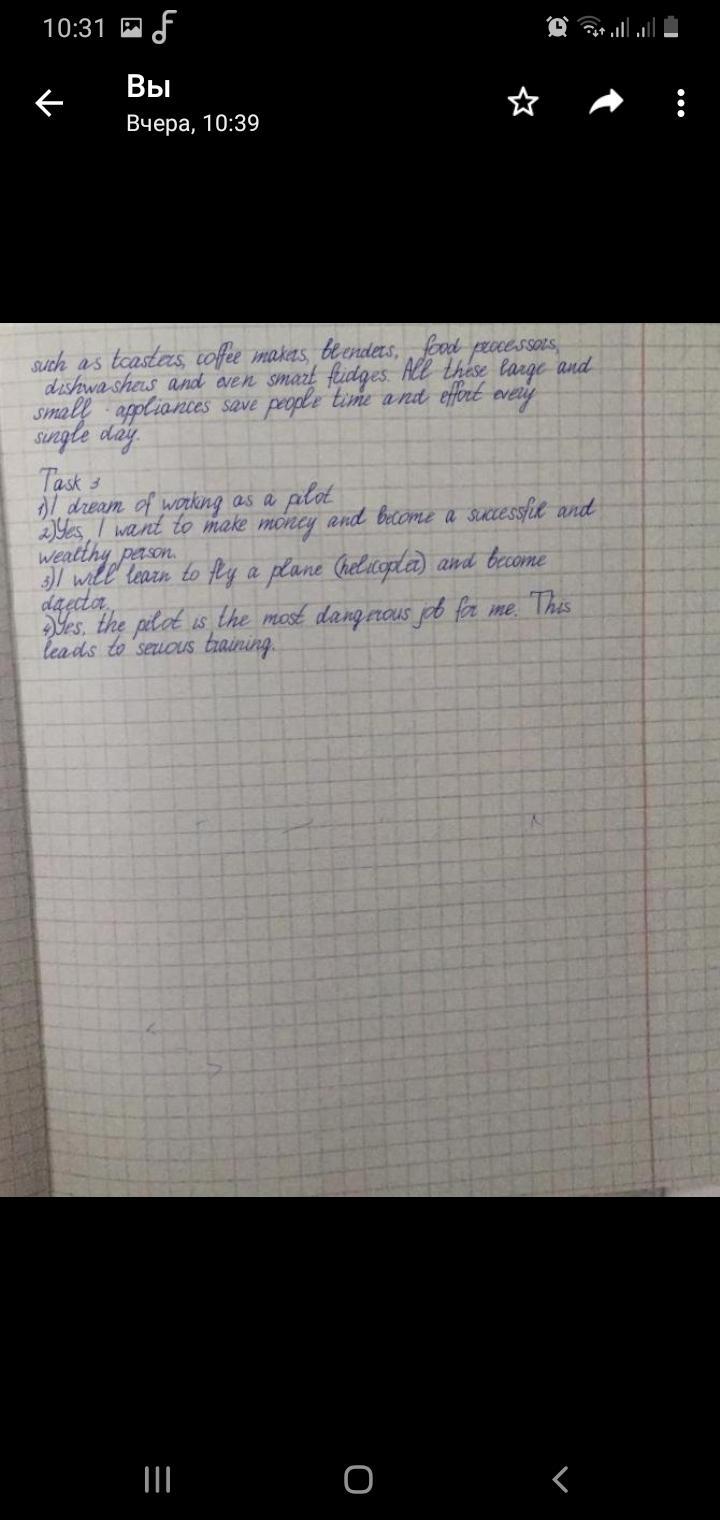 10:31
Вы
Вчера, 10:39
such as toasters, coffee makers, blenders, food processors,
dishwashers and even smart fridges. All these large and
small appliances save people time and effort every
single day.
Task 3
1) I dream of working as a pilot
2) Yes, I want to make money and become a successful and
wealthy person.
3) I will learn to fly a plane (helicopter) and become
director.
4) Yes, the pilot is the most dangerous job for me. This
leads to serious training.